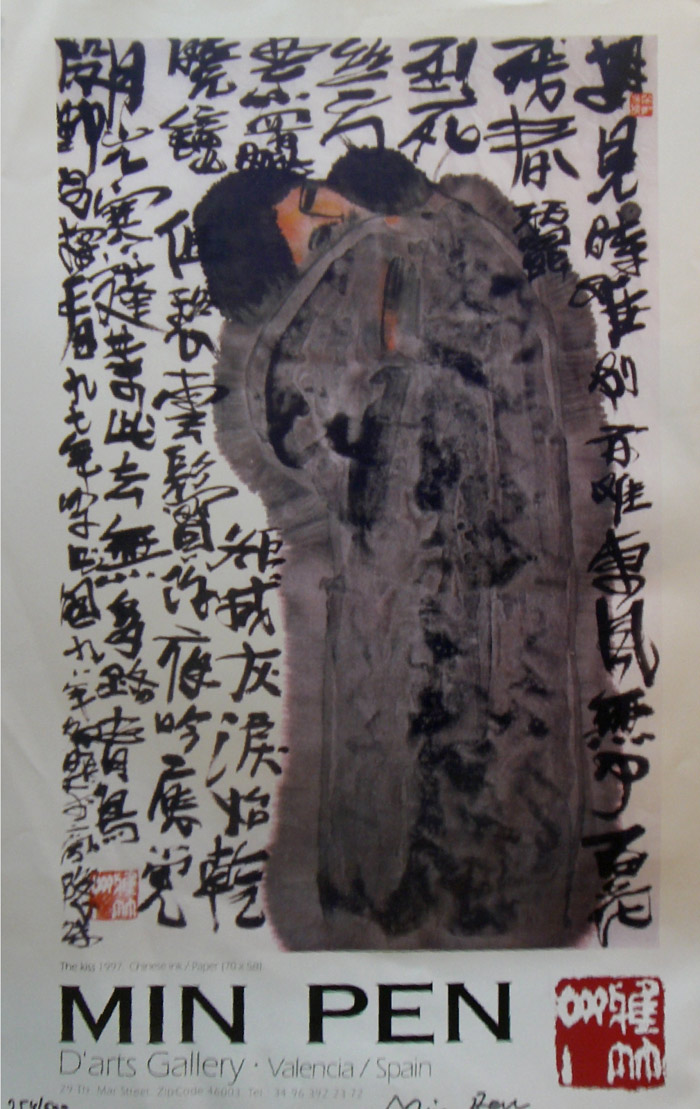 相見時难別亦难東風無力百花
殘春蠶
到死
丝方
盡蠟
炬成灰淚始乾
曉鏡但愁雲鬢改夜吟應覺
月光寒蓬莱此去無多路青鳥
殷勤為探看九七年
The kiss 1997. Chinese ink / Paper (70 x 58)
MIN PEN
D'arts Gallery · Valencia / Spain
29 Th. Mar Street. ZipCode 46003 Tel. 34 96 392 23 72